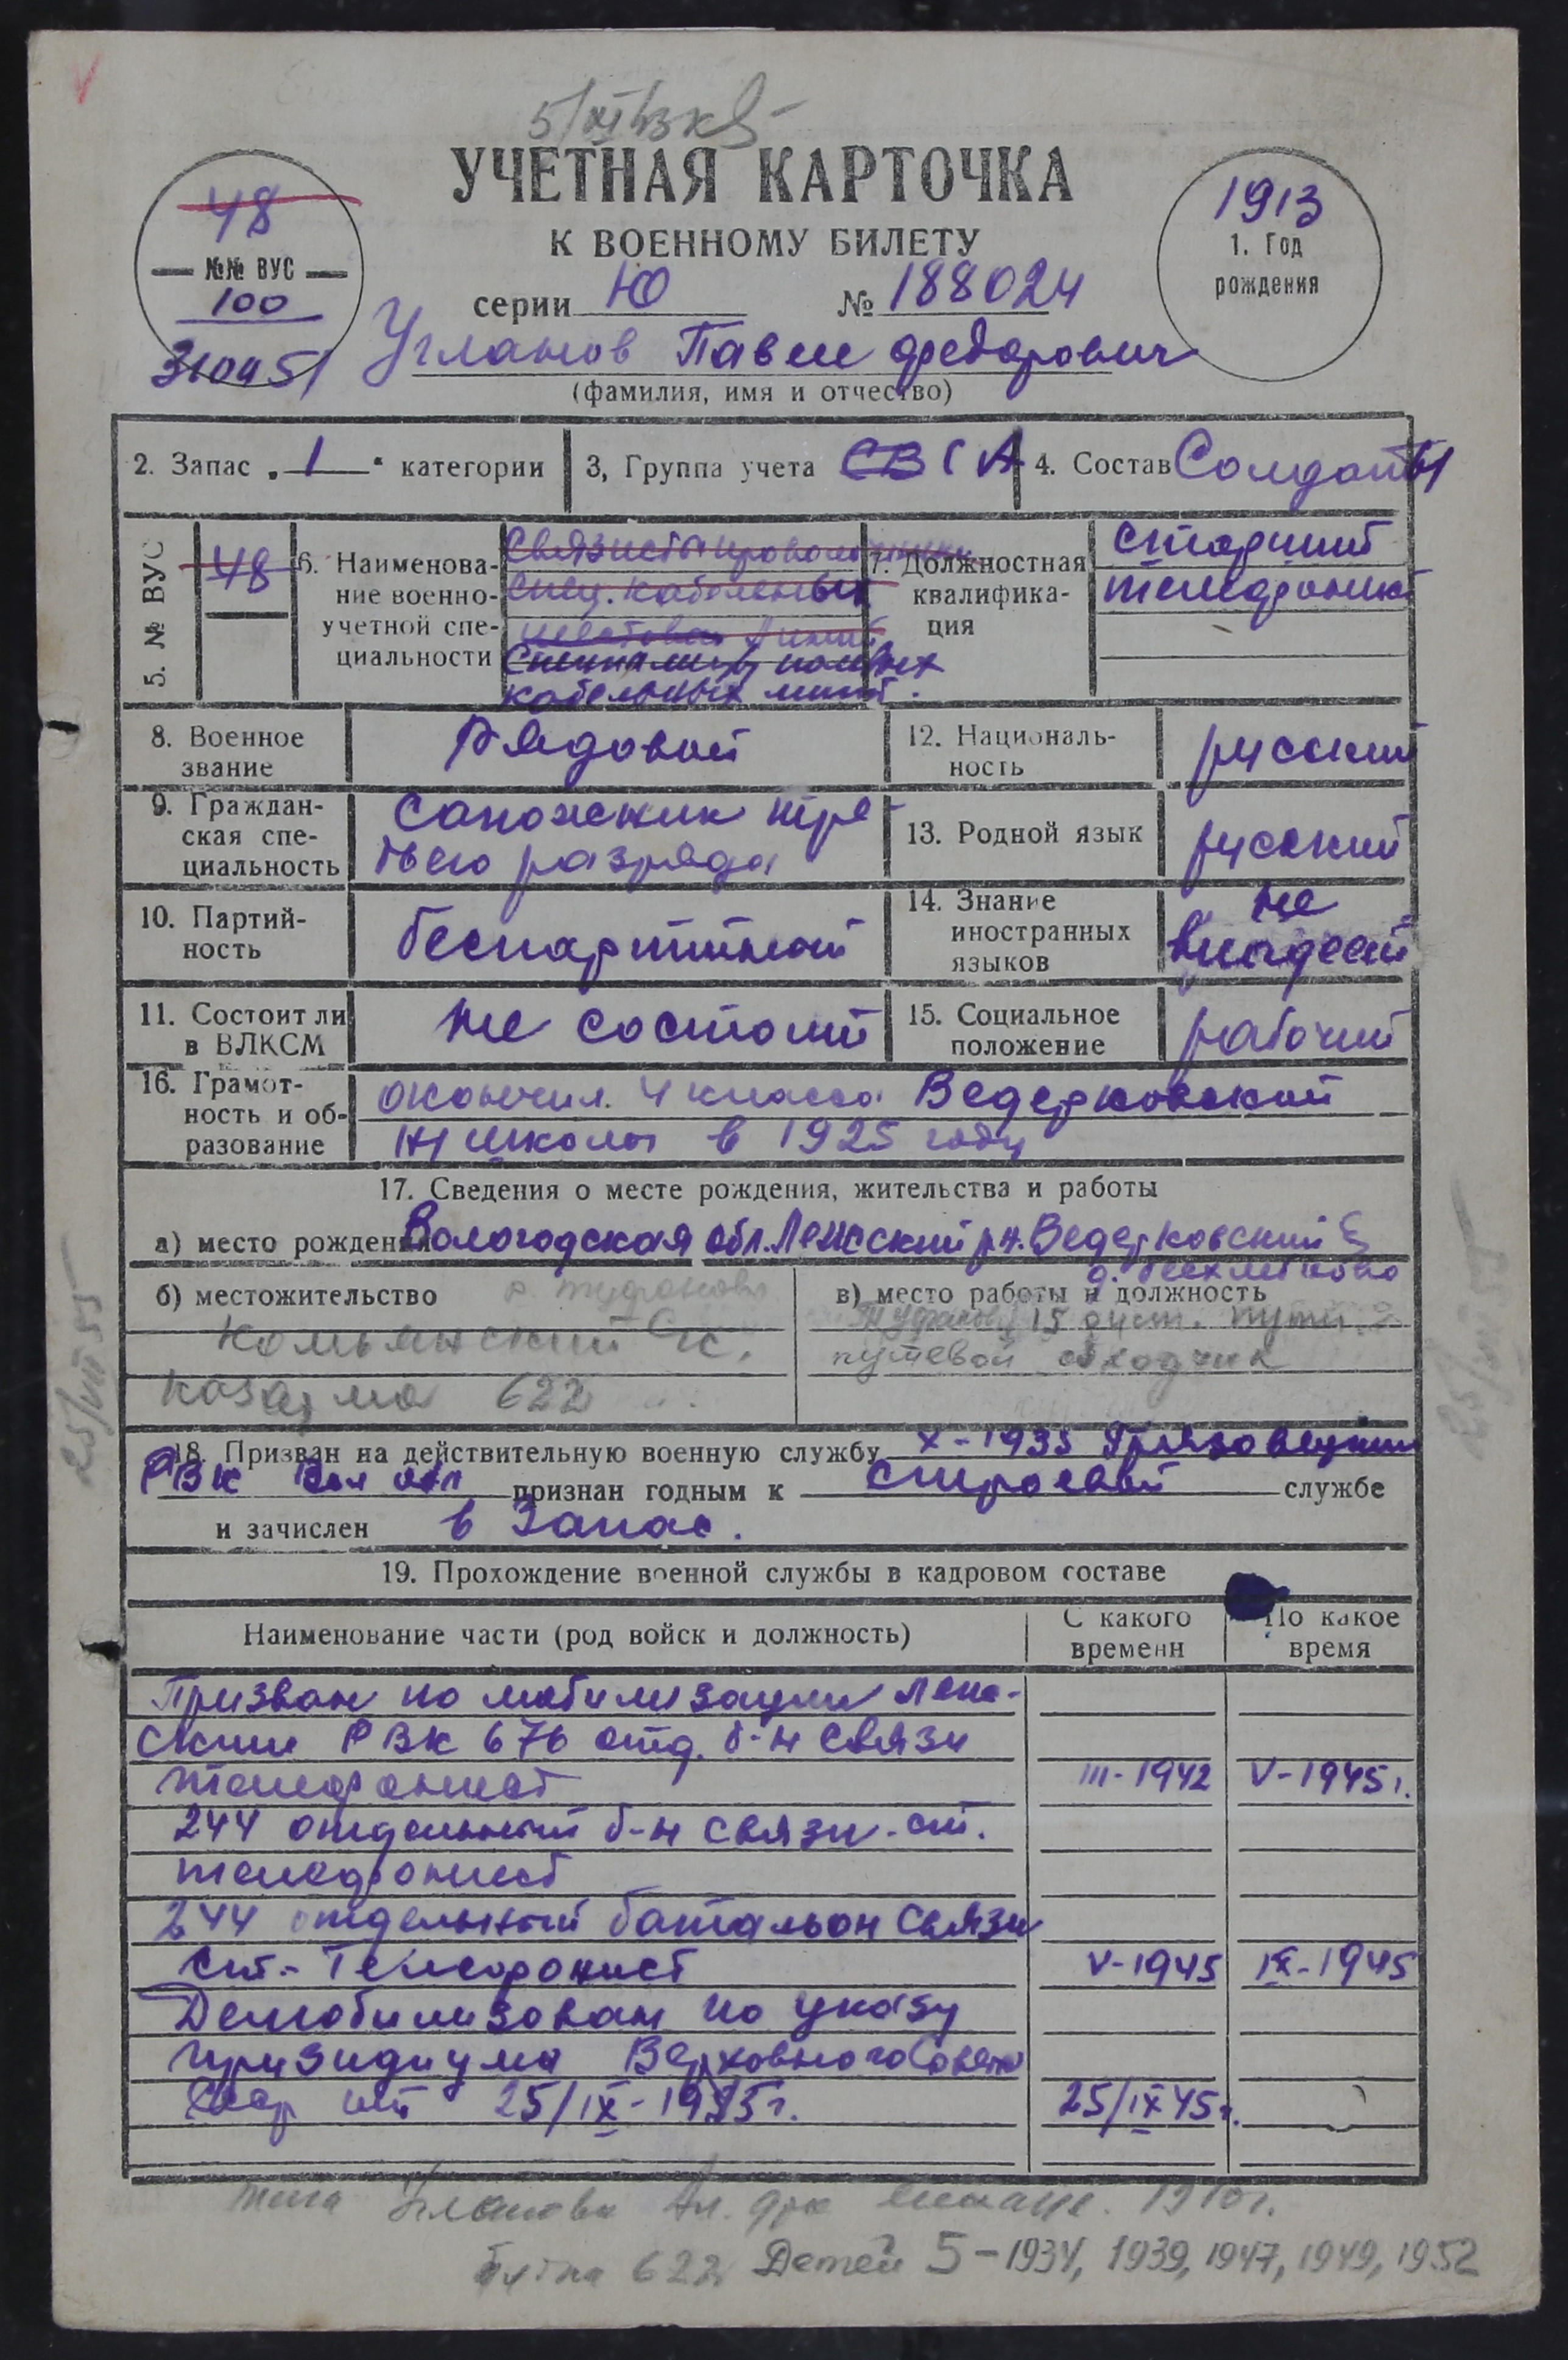 УЧЕТНАЯ КАРТОЧКА
К ВОЕННОМУ БИЛЕТУ
серии Ю № 188024
48
№№ ВУС
100
1913
1. Год
рождения
Угланов Павел Федорович
(фамилия, имя и отчество)
2. Запас „1“ категории
3, Группа учета СВ СА
4. Состав Солдаты
5. № ВУС 48
6. Наименова-
ние военно-
учетной спе-
циальности
Связисты
спец. кабельных
шестовых линий
кабельных линий.
7. Должностная
квалифика-
ция
старший
телефонист
8. Военное
звание
Рядовой
12. Националь-
ность
русский
9. Граждан-
ская спе-
циальность
Сапожник тре-
тьего разряда
13. Родной язык
русский
10. Партий-
ность
беспартийный
14. Знание
иностранных
языков
не
владеет
11. Состоит ли
в ВЛКСМ
не состоит
15. Социальное
положение
рабочий
16. Грамот-
ность и об-
разование
окончил 4 класса Ведерковской
школы в 1925 году
17. Сведения о месте рождения, жительства и работы
а) место рождения Вологодская обл. Лежский рн. Ведерковский
б) местожительство
д. Туфаново
Комьянский с/с.
казарма 622
в) место работы и должность
Туфаново 15 дист. пути
путевой обходчик
18. Призван на действительную военную службу X-1935 Грязовецким
РВК Вол обл признан годным к строевой службе
и зачислен в Запас.
19. Прохождение военной службы в кадровом составе
Наименование части (род войск и должность)
С какого
времени
По какое
время
Призван по мобилизации Леж-
ским РВК 676 отд. б-н связи
телефонист III-1942 V-1945 г.
244 отдельный б-н связи-ст.
телефонист
244 отдельный батальон связи
ст.-Телефонист V-1945 IX-1945
Демобилизован по указу
призидиума Верховного Совета
от 25/IX-1945 г. 25/IX 45 г.
жена Угланова 1910 г.
622 Детей 5-1934, 1939, 1947, 1949, 1952
25/VII 55
25/VII 55